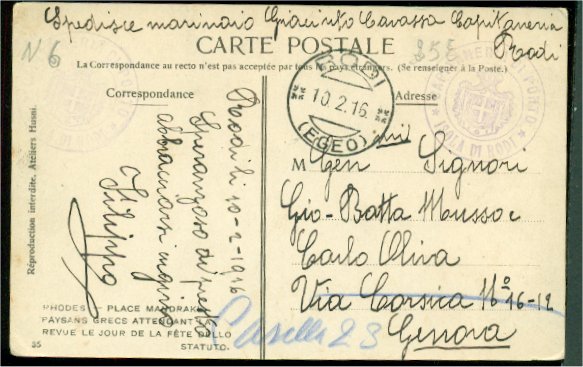 Spedisce marinaio Giacinto Cavassa Capitaneria
Rodi
N 6
35£
CARTE POSTALE
La Correspondance au recto n'est pas acceptée par tous les pays étrangers. (Se renseigner à la Poste.)
Correspondance
Adresse
RODI
10.2.16
(EGEO)
ISOLA DI RODI
Rodi li 10-2-1916
Speranzoso di presto
abbracciarvi
Filippo
M
Gen mi Signori
Gio-Batta Musso e
Carlo Oliva
Via Corsica No 16-12
Genova
Casella 23
RHODES — PLACE MANDRAKI
PAYSANS GRECS ATTENDANT LA
REVUE LE JOUR DE LA FÊTE DELLO
STATUTO.
35
Réproduction interdite. Ateliers Husni.